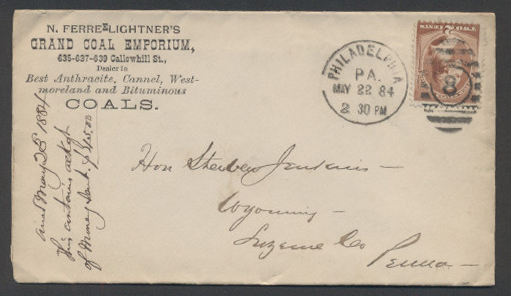 N. FERREE LIGHTNER'S
GRAND COAL EMPORIUM,
635-637-639 Callowhill St.,
Dealer in
Best Anthracite, Cannel, West-
moreland and Bituminous
COALS.
PHILADELPHIA
PA.
MAY 22 84
2 30 PM
8
Hon Steuben Jenkins
Wyoming
Luzerne Co
Penna
May 23 1884
This contains
of Money